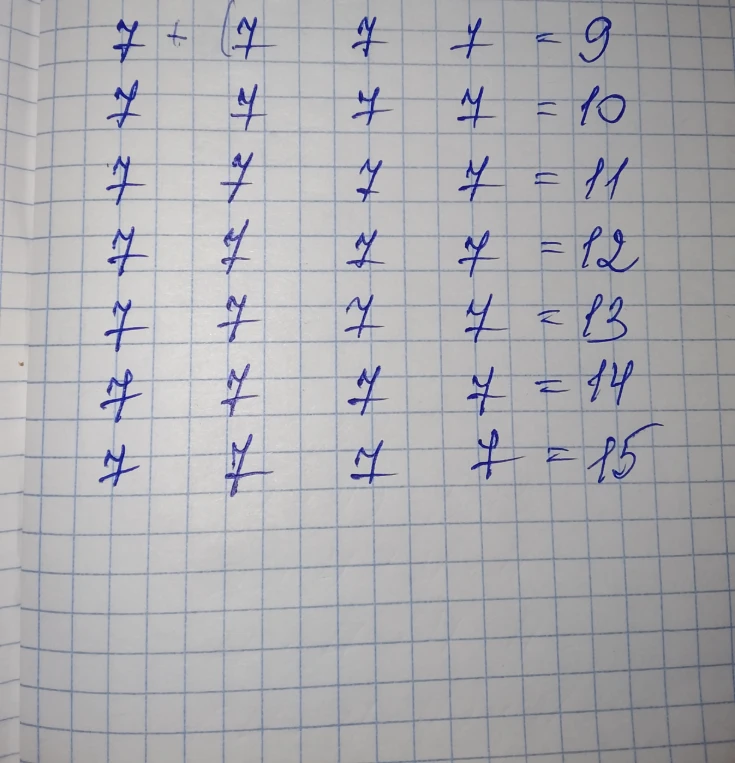 7 + (7 7 7 = 9
7 7 7 7 = 10
7 7 7 7 = 11
7 7 7 7 = 12
7 7 7 7 = 13
7 7 7 7 = 14
7 7 7 7 = 15